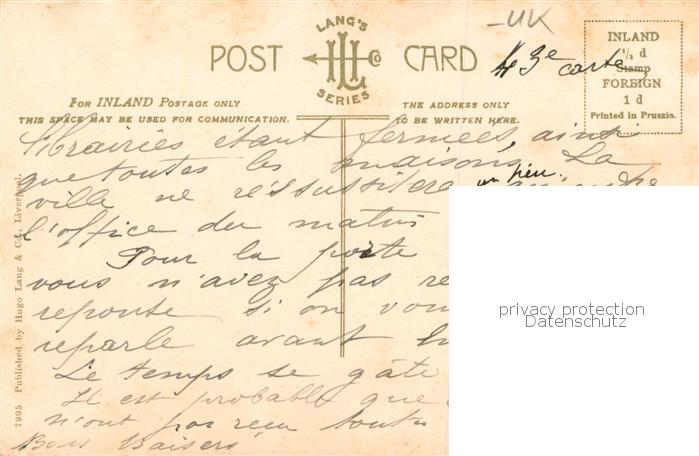 LANG'S
POST CARD
HL Co
SERIES
-UK
3e carte
INLAND
½ d
Stamp
FOREIGN
1 d
Printed in Prussia.
FOR INLAND POSTAGE ONLY
THIS SPACE MAY BE USED FOR COMMUNICATION.
THE ADDRESS ONLY
TO BE WRITTEN HERE.
librairies étant fermées, ainsi
que toutes les maisons. La
ville ne réssussitera un peu
l'office du matin
Pour la porte
vous n'avez pas re
reponse si on vou
reparle avant
Le temps se gâte
Il est probable que
n'ont pas reçu toutes
Bons baisers
7995 Published by Hugo Lang & Co., Liverpool.
privacy protection
Datenschutz